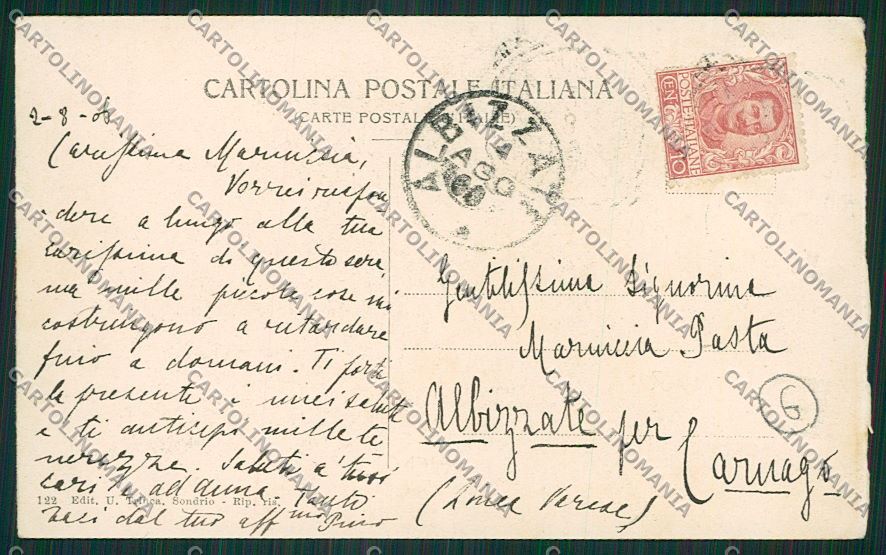 CARTOLINA POSTALE ITALIANA
(CARTE POSTALE ITALIE)
POSTE ITALIANE
CENT. 10
ALBIZZATE
AGO
2-8-08
Carissima Mariuccia,
Vorrei rispon
dere a lungo alla tua
carissima di questa sera,
ma mille piccole cose mi
costringono a ritardare
fino a domani. Ti porti
la presente i miei saluti
e ti anticipo mille te
nerezze. Saluti a' tuoi
cari e ad Anna. Tanti
baci dal tuo aff.mo Pino
Gentilissima Signorina
Mariuccia Pasta
Albizzate per
Carnago
(Linea Varese)
9
122 Edit. U. Trinca, Sondrio - Rip. ris.
CARTOLINOMANIA